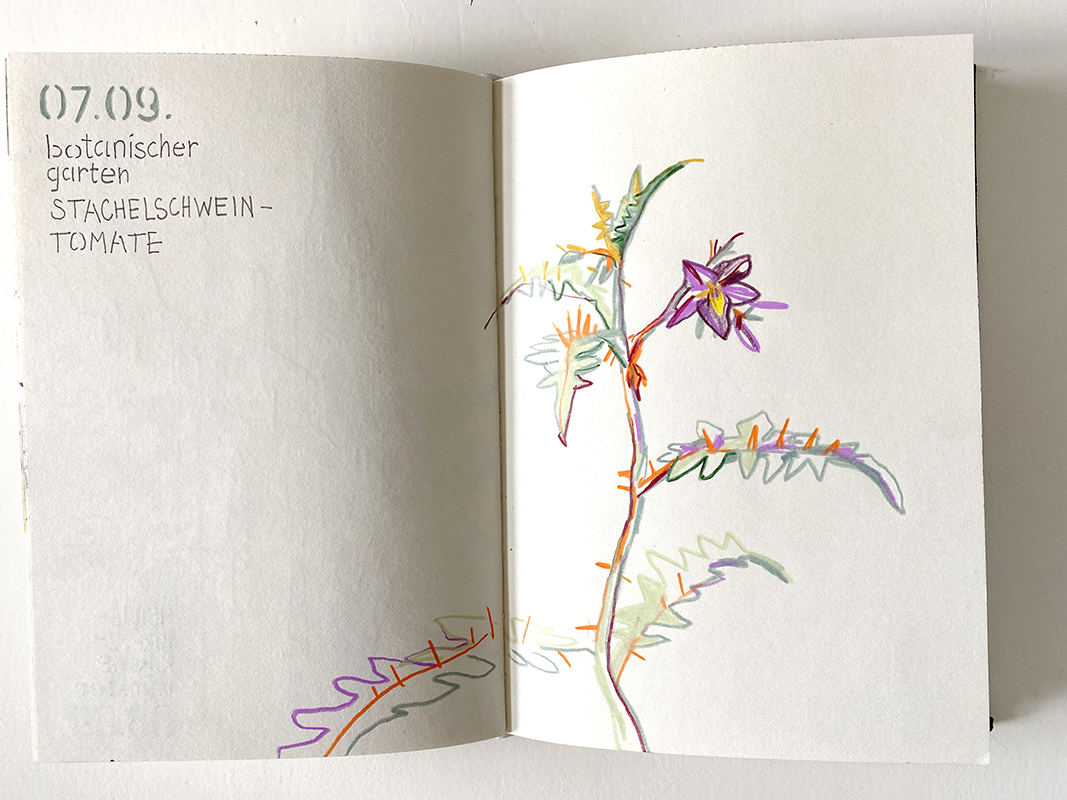 07.09.
botanischer
garten
STACHELSCHWEIN-
TOMATE